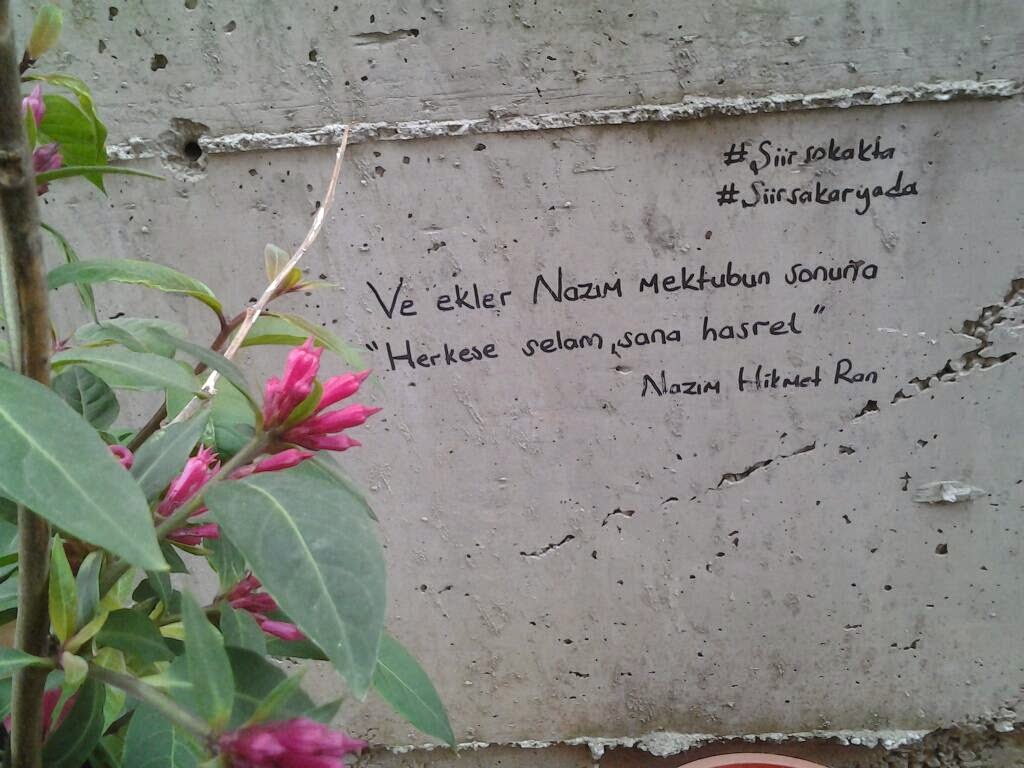 #Şiirsokakta
#Şiirsakaryada
Ve ekler Nazım mektubun sonuna
"Herkese selam, sana hasret"
Nazım Hikmet Ran